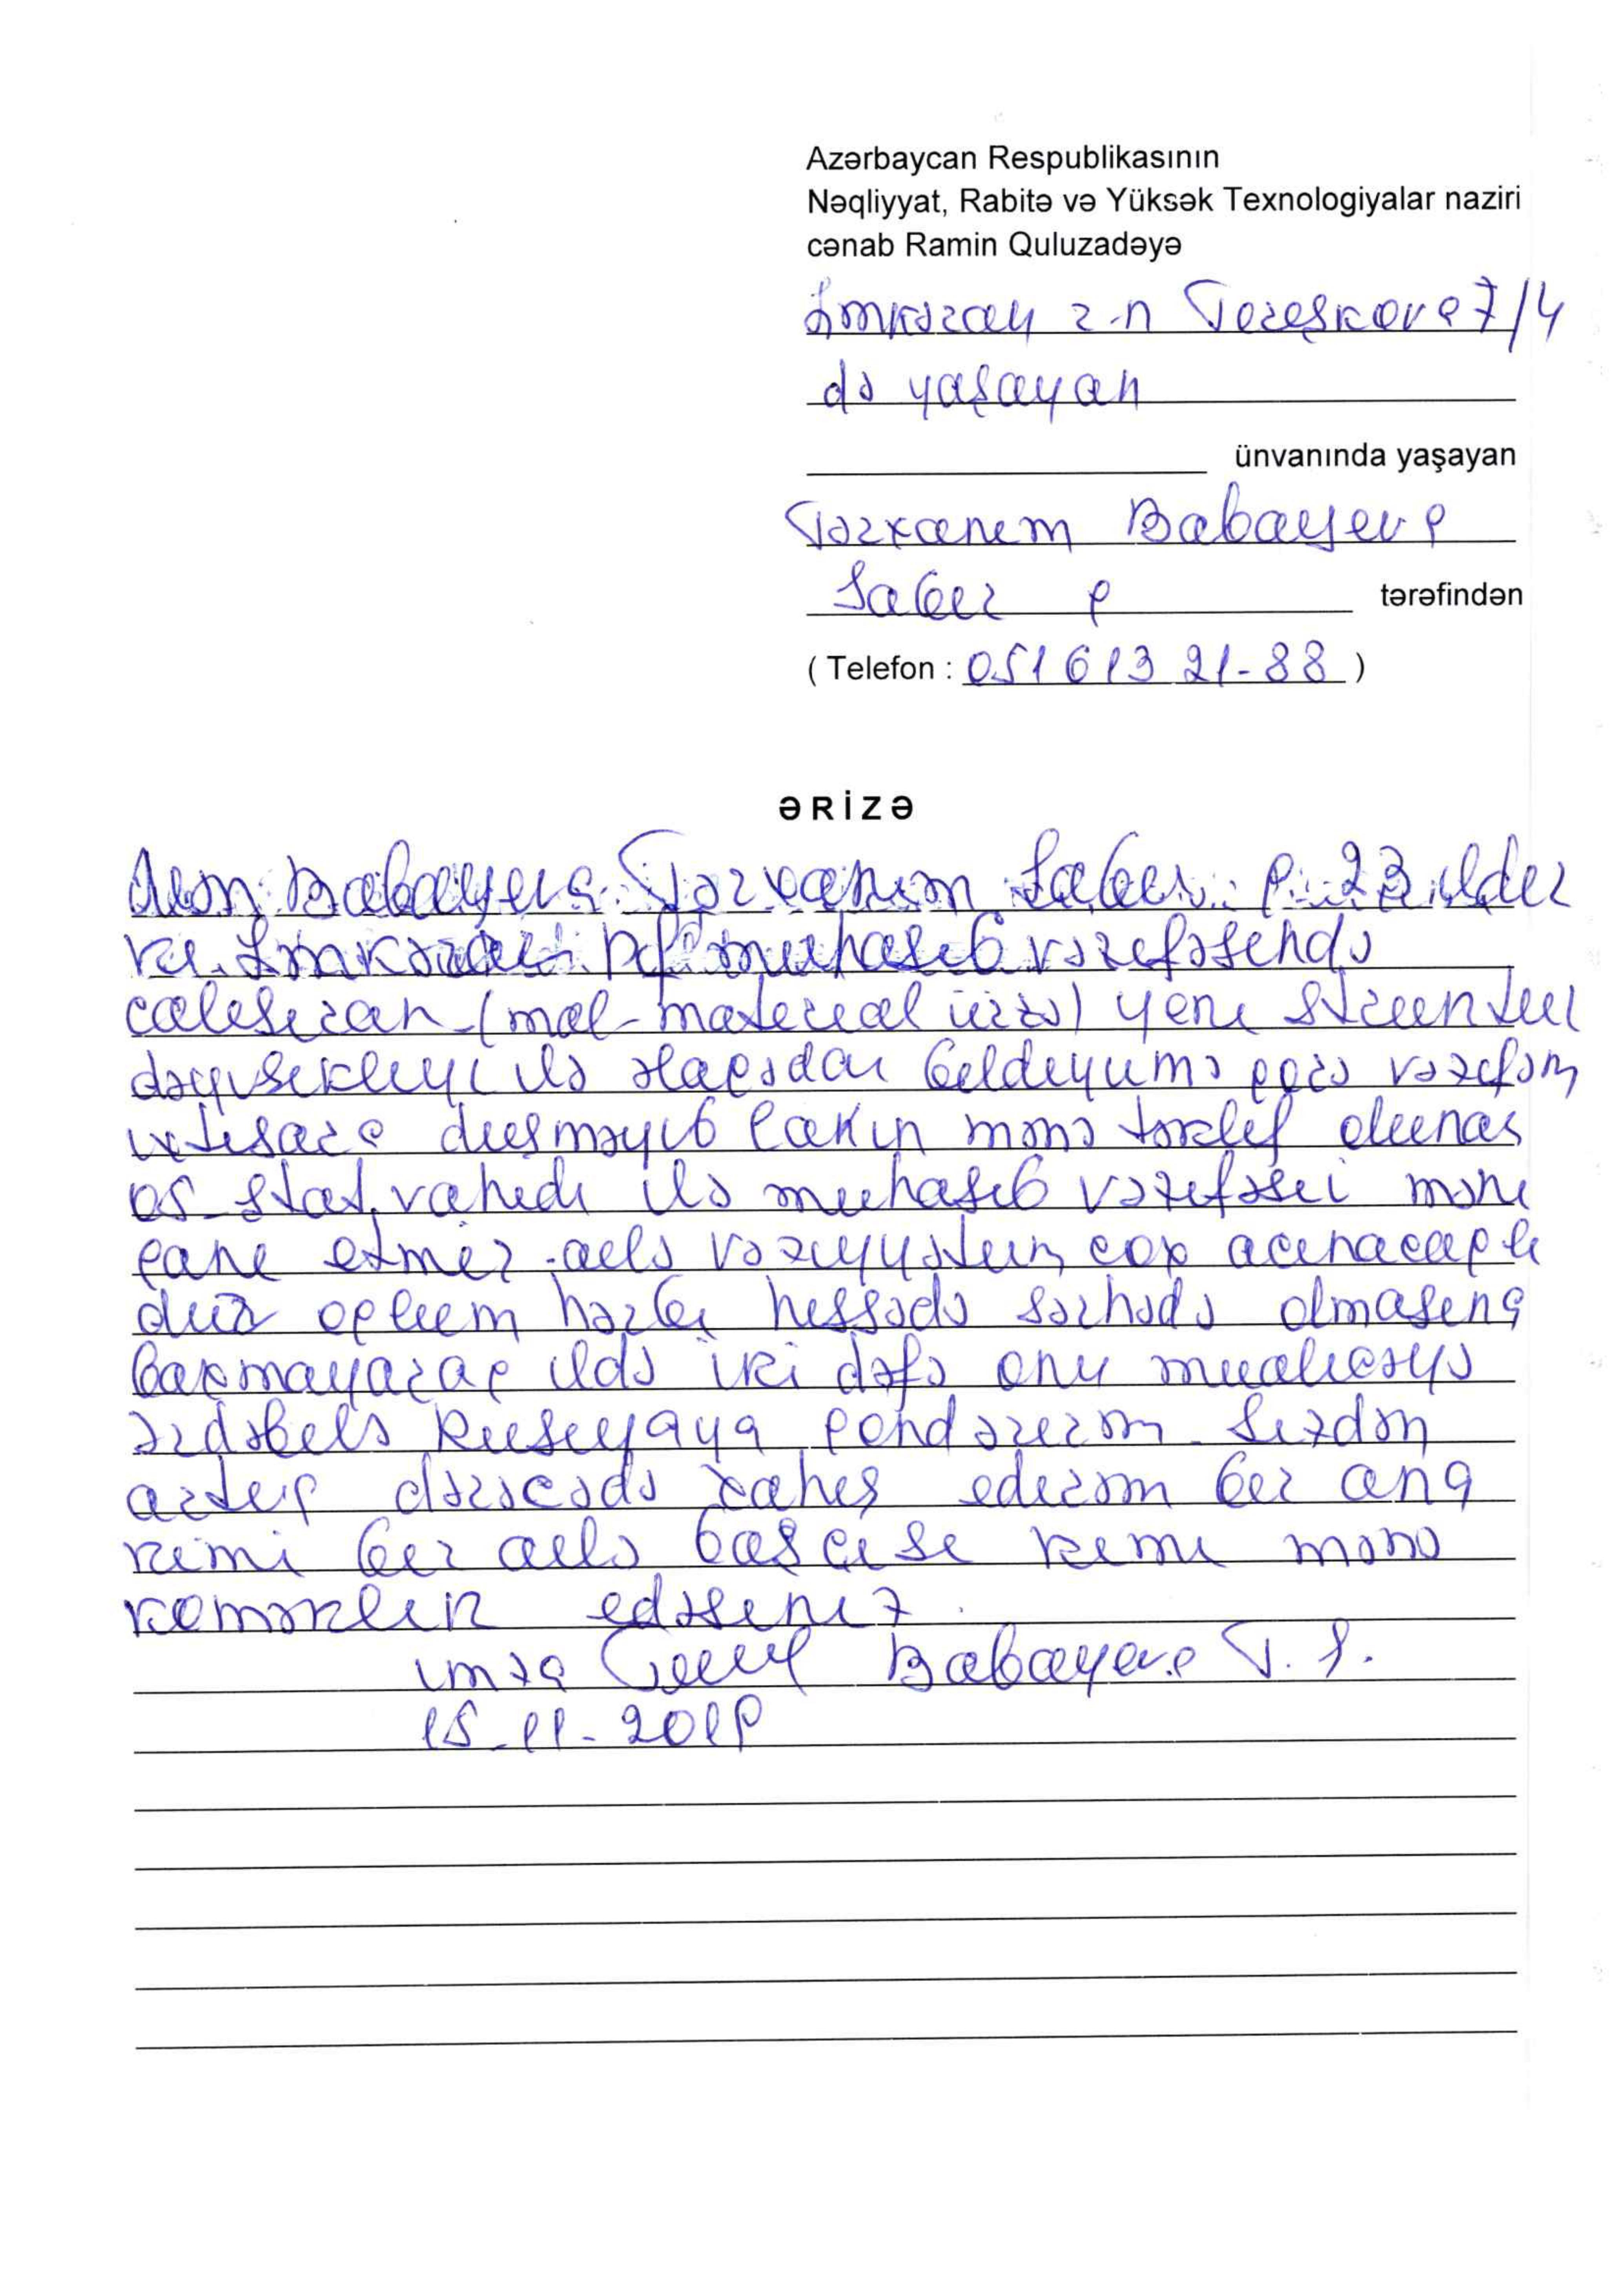 Azərbaycan Respublikasının
Nəqliyyat, Rabitə və Yüksək Texnologiyalar naziri
cənab Ramin Quluzadəyə
Lənkəran r-n Tereşkova 7/4
də yaşayan
ünvanında yaşayan
Tərxanım Babayeva
Sabir q tərəfindən
( Telefon : 051 613 21-88 )
ƏRİZƏ
Mən Babayeva Tərxanım Sabir q 23 ildir
ki Lənkəran muhasib vəzifəsində
calışıram (mal-material üzrə) yeni
dəyişikliyi ilə əlaqədar bildiyimə görə vəzifəm
ixtisara duşməyib lakin mənə təklif olunan
05 ştat vahidi ilə muhasib vəzifəsi məni
qane etmir ailə vəziyyətim cox acınacaqlı
dır oglum hərbi hissədə sərhədə olmasına
baxmayaraq ildə iki dəfə onu mualicəyə
Ərdəbilə Rusiyaya göndərirəm. Sizdən
artıq dərəcədə xahiş edirəm bir ana
kimi bir ailə başçısı kimi mənə
köməklik edəsiniz.
imza Babayeva T. S.
15-11-2019